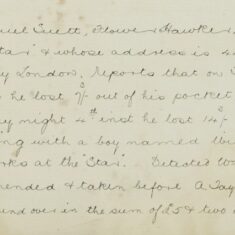 uel Suett, Flower Hawker,
Star & whose address is
y London. Reports that on
he lost 9/- out of his pocket
y night 4th inst he lost 14/-
ing with a boy named
orks at the Star. Detected
ended & taken before A. Tay
ound over in the sum of £5 & two